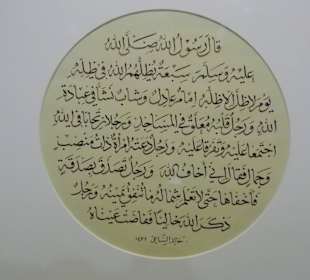 قال رسول الله صلى الله
عليه وسلم سبعة يظلهم الله في ظله
يوم لا ظل إلا ظله إمام عادل وشاب نشأ في عبادة
الله ورجل قلبه معلق في المساجد ورجلان تحابا في الله
اجتمعا عليه وتفرقا عليه ورجل دعته امرأة ذات منصب
وجمال فقال إني أخاف الله ورجل تصدق بصدقة
فأخفاها حتى لا تعلم شماله ما تنفق يمينه ورجل
ذكر الله خاليا ففاضت عيناه